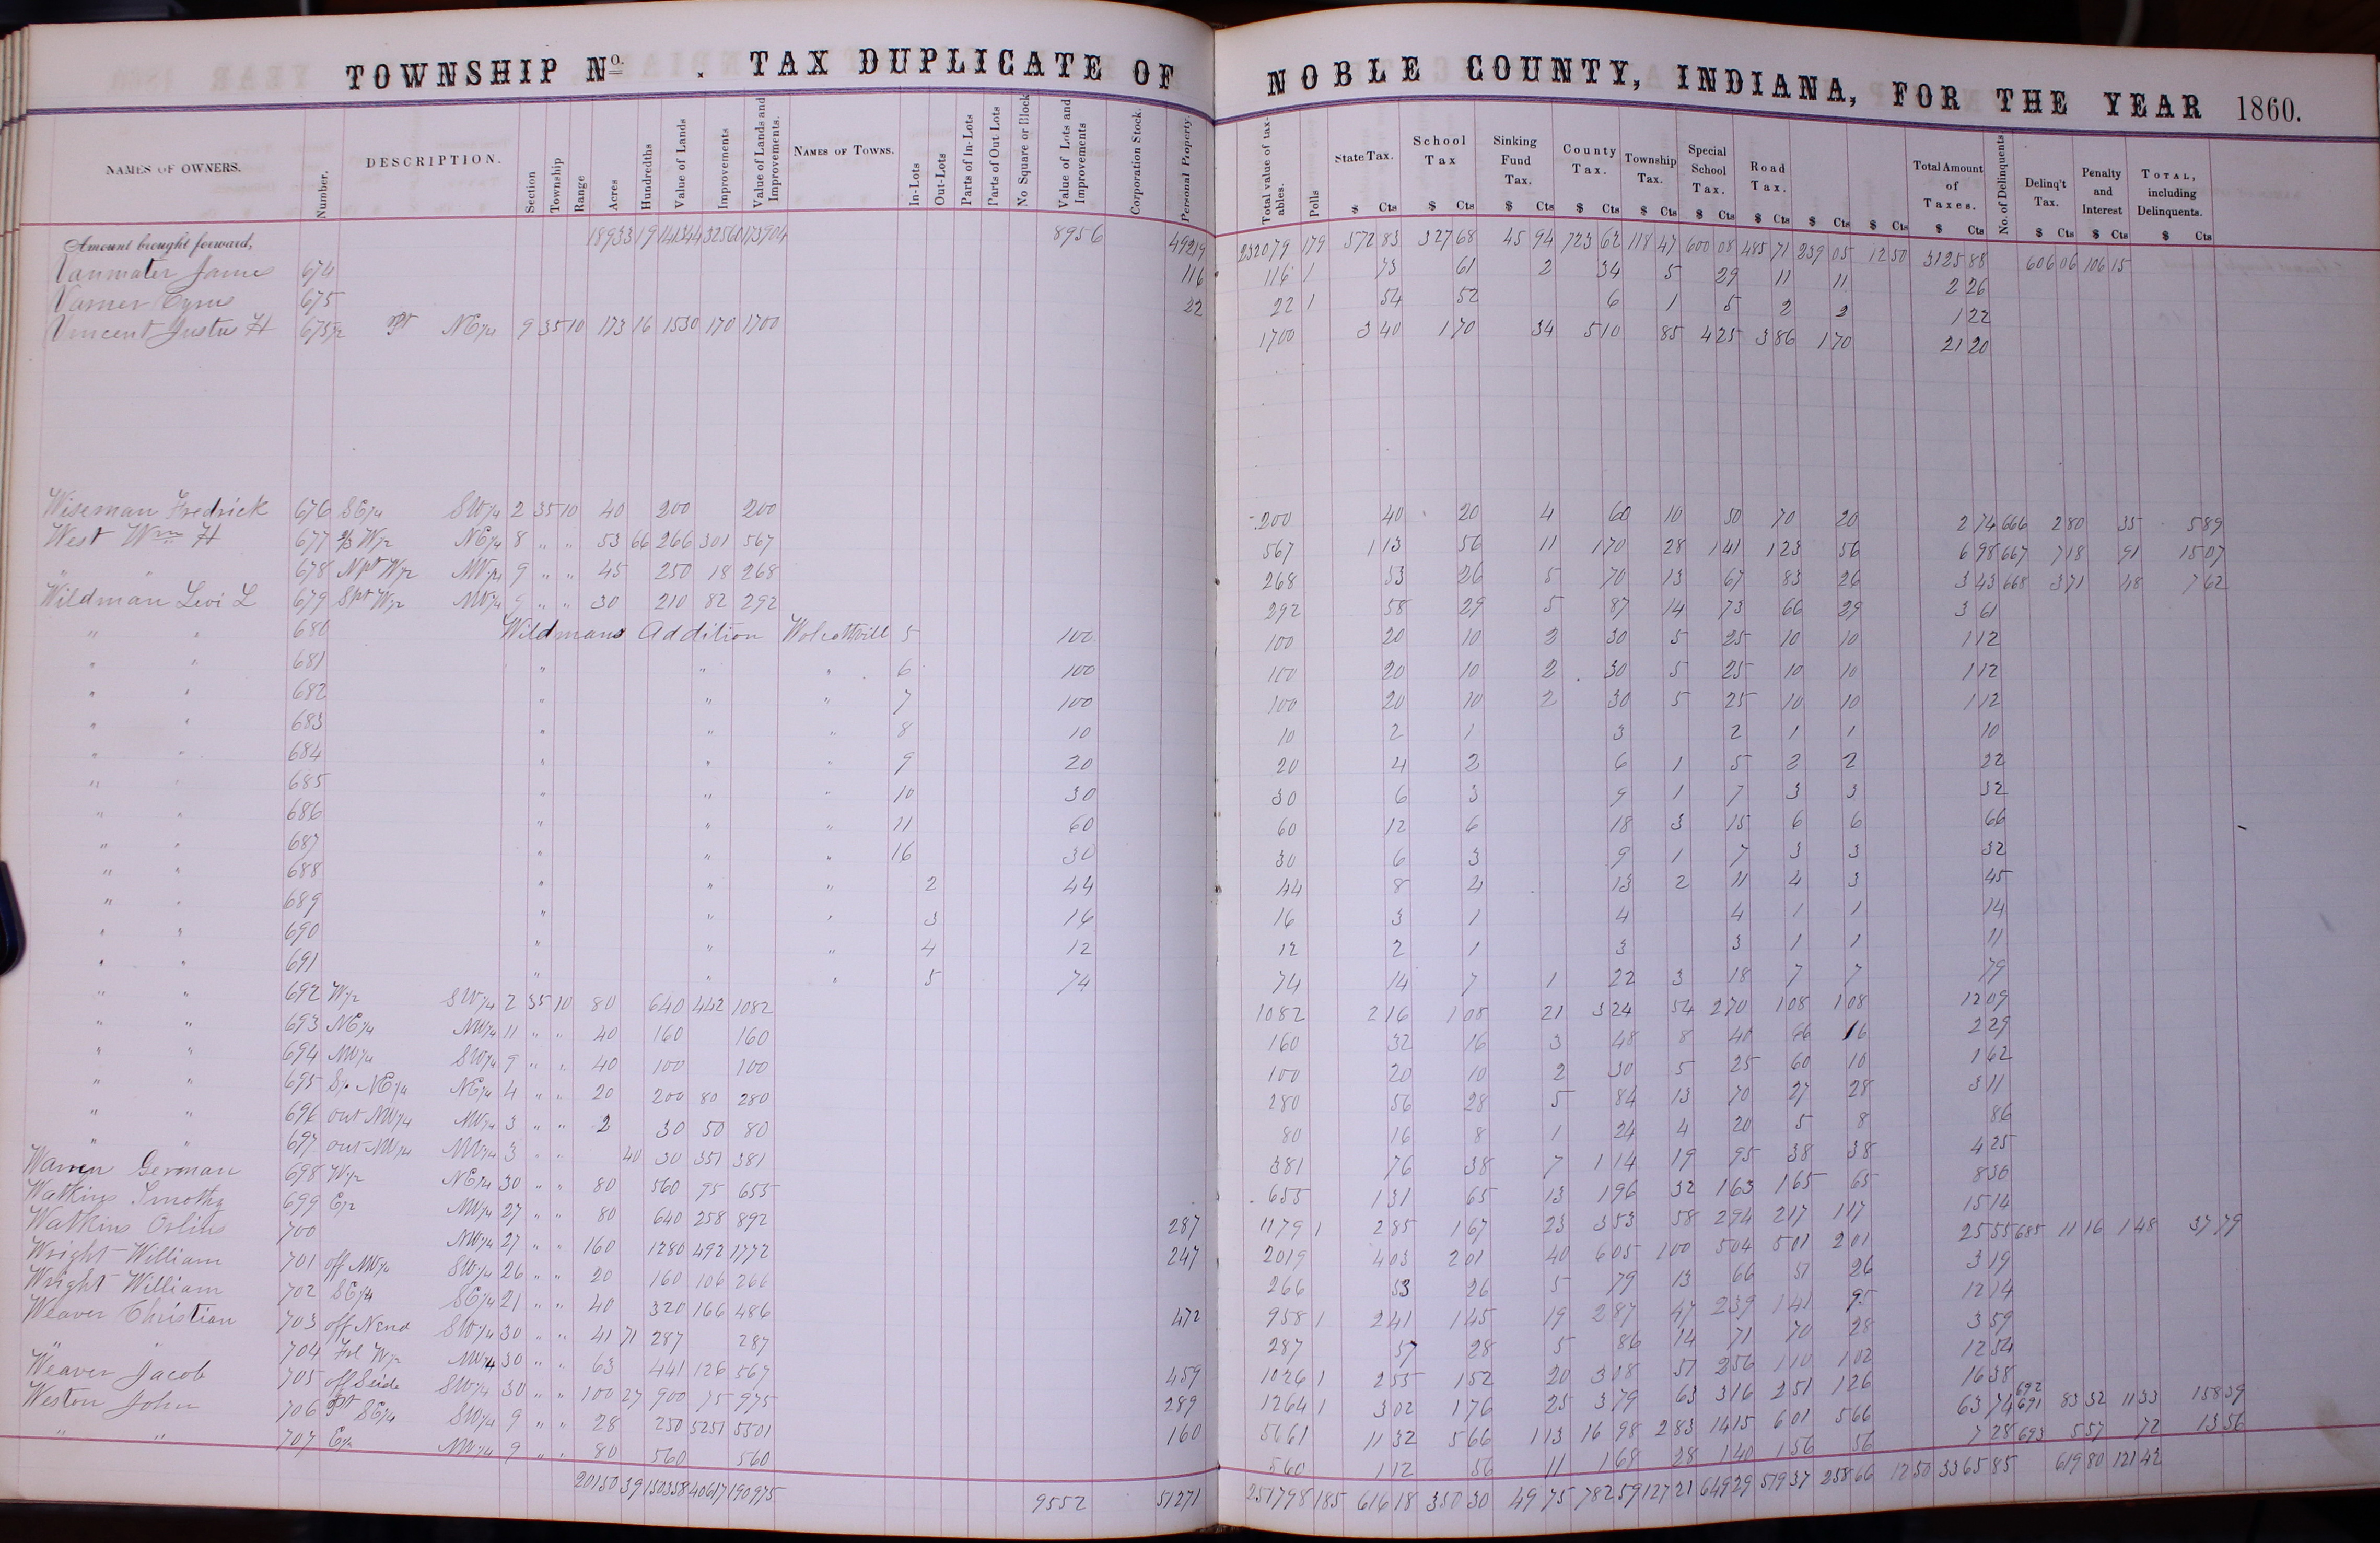 TOWNSHIP Nº . TAX DUPLICATE OF NOBLE COUNTY, INDIANA, FOR THE YEAR 1860.
NAMES OF OWNERS. Number. DESCRIPTION. Section Township Range Acres Hundredths Value of Lands Improvements Value of Lands and Improvements. NAMES OF TOWNS. In-Lots Out-Lots Parts of In-Lots Parts of Out Lots No Square or Block Value of Lots and Improvements Corporation Stock. Personal Property. Total value of taxables. Polls State Tax. School Tax Sinking Fund Tax. County Tax. Township Tax. Special School Tax. Road Tax. Total Amount of Taxes. No. of Delinquents Delinq't Tax. Penalty and Interest TOTAL, including Delinquents.
$ Cts $ Cts $ Cts $ Cts $ Cts $ Cts $ Cts $ Cts $ Cts $ Cts $ Cts $ Cts $ Cts
Amount brought forward, 18933 19 141344 32560 173904 8956 49219 232079 179 572 83 327 68 45 94 723 62 118 47 600 08 485 71 239 05 12 50 3125 88 606 06 106 15
Vanmater James 674 116 116 1 73 61 2 34 5 29 11 11 2 26
Varner Cyrus 675 22 22 1 54 52 6 1 5 2 2 1 22
Vincent Justus H 675½ pt NE¼ 9 35 10 173 16 1530 170 1700 1700 3 40 1 70 34 5 10 85 4 25 3 86 1 70 21 20
Wiseman Fredrick 676 SE¼ SW¼ 2 35 10 40 200 200 200 40 20 4 60 10 50 70 20 2 74 666 2 80 35 5 89
West Wm H 677 ⅔ W½ NE¼ 8 " " 53 66 266 301 567 567 1 13 56 11 1 70 28 1 41 1 23 56 6 98 667 7 18 91 15 07
" " 678 N pt W½ NW¼ 9 " " 45 250 18 268 268 53 26 5 70 13 67 83 26 3 43 668 3 71 48 7 62
Wildman Levi L 679 S pt W½ NW¼ 9 " " 30 210 82 292 292 58 29 5 87 14 73 66 29 3 61
" " 680 Wildmans Addition Wolcottvill 5 100 100 20 10 2 30 5 25 10 10 1 12
" " 681 " " " 6 100 100 20 10 2 30 5 25 10 10 1 12
" " 682 " " " 7 100 100 20 10 2 30 5 25 10 10 1 12
" " 683 " " " 8 10 10 2 1 3 2 1 1 10
" " 684 " " " 9 20 20 4 2 6 1 5 2 2 22
" " 685 " " " 10 30 30 6 3 9 1 7 3 3 32
" " 686 " " " 11 60 60 12 6 18 3 15 6 6 66
" " 687 " " " 16 30 30 6 3 9 1 7 3 3 32
" " 688 " " " 2 44 44 8 4 13 2 11 4 3 45
" " 689 " " " 3 16 16 3 1 4 4 1 1 14
" " 690 " " " 4 12 12 2 1 3 3 1 1 11
" " 691 " " " 5 74 74 14 7 1 22 3 18 7 7 79
" " 692 W½ SW¼ 2 35 10 80 640 442 1082 1082 2 16 1 08 21 3 24 54 2 70 1 08 1 08 12 09
" " 693 NE¼ NW¼ 11 " " 40 160 160 160 32 16 3 48 8 40 66 16 2 29
" " 694 NW¼ SW¼ 9 " " 40 100 100 100 20 10 2 30 5 25 60 10 1 62
" " 695 S½ NE¼ NE¼ 4 " " 20 200 80 280 280 56 28 5 84 13 70 27 28 3 11
" " 696 out NW¼ NW¼ 3 " " 2 30 50 80 80 16 8 1 24 4 20 5 8 86
" " 697 out NW¼ NW¼ 3 " " 40 30 351 381 381 76 38 7 1 14 19 95 38 38 4 25
Warren German 698 W½ NE¼ 30 " " 80 560 95 655 655 1 31 65 13 1 96 32 1 63 1 65 65 8 30
Watkins Timothy 699 E½ NW¼ 27 " " 80 640 258 892 287 1179 1 2 85 1 67 23 3 53 58 2 94 2 17 1 17 15 14
Watkins Orlius 700 NW¼ 27 " " 160 1280 492 1772 247 2019 4 03 2 01 40 6 05 1 00 5 04 5 01 2 01 25 55 685 11 16 1 48 37 79
Wright William 701 off NW¼ SW¼ 26 " " 20 160 106 266 266 53 26 5 79 13 66 51 26 3 19
Wright William 702 SE¼ SE¼ 21 " " 40 320 166 486 472 958 1 2 41 1 45 19 2 87 47 2 39 1 41 95 12 14
Weaver Christian 703 off N end SW¼ 30 " " 41 71 287 287 287 57 28 5 86 14 71 70 28 3 59
" " 704 Frl W½ NW¼ 30 " " 63 441 126 567 459 1026 1 2 55 1 52 20 3 08 51 2 56 1 10 1 02 12 54
Weaver Jacob 705 off S side SW¼ 30 " " 100 27 900 75 975 289 1264 1 3 02 1 76 25 3 79 63 3 16 2 51 1 26 16 38
Weston John 706 pt SE¼ SW¼ 9 " " 28 250 5251 5501 160 5661 11 32 5 66 1 13 16 98 2 83 14 15 6 01 5 66 63 74 692 691 83 32 11 33 158 39
" " 707 E½ NW¼ 9 " " 80 560 560 560 1 12 56 11 1 68 28 1 40 1 56 56 7 28 693 5 57 72 13 56
20150 39 150358 40617 190975 9552 51271 251798 185 616 18 350 30 49 75 782 59 127 21 649 29 519 37 258 66 12 50 3365 85 619 80 121 42